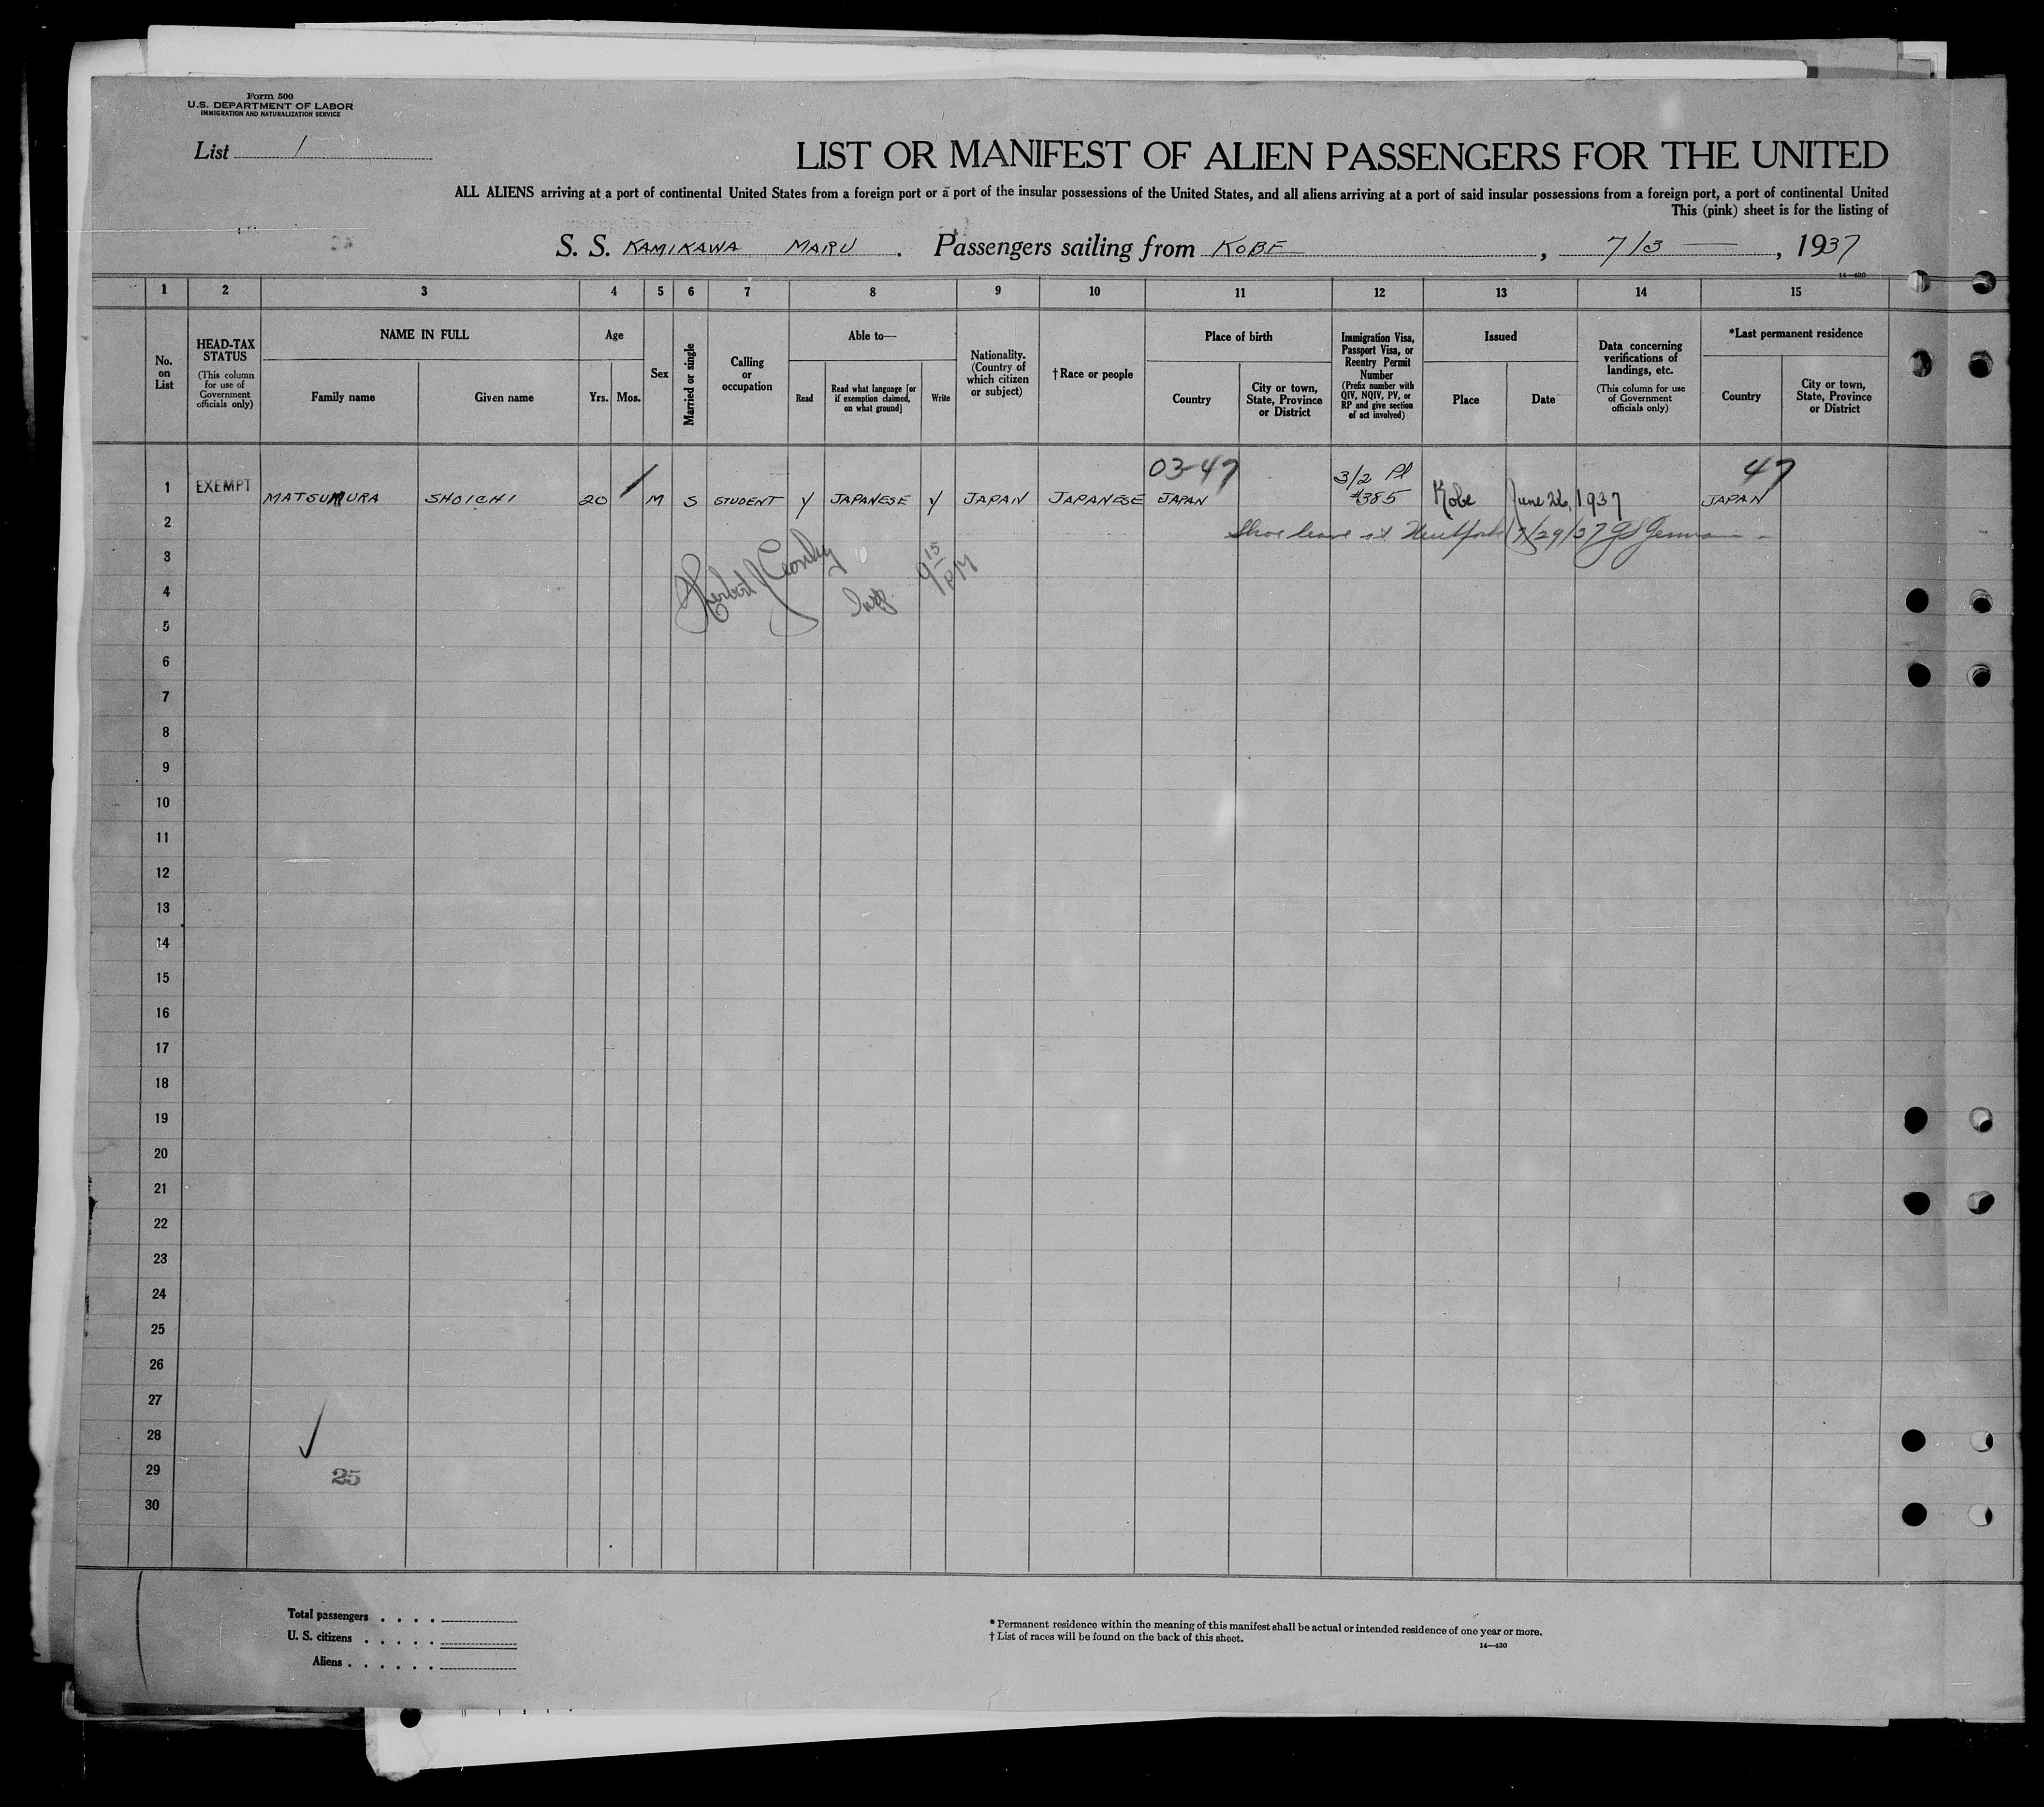 Form 500
U.S. DEPARTMENT OF LABOR
IMMIGRATION AND NATURALIZATION SERVICE
List 1
LIST OR MANIFEST OF ALIEN PASSENGERS FOR THE UNITED
ALL ALIENS arriving at a port of continental United States from a foreign port or a port of the insular possessions of the United States, and all aliens arriving at a port of said insular possessions from a foreign port, a port of continental United
This (pink) sheet is for the listing of
S. S. KAMIKAWA MARU . Passengers sailing from KOBE , 7/3 — , 1937
14—430
1 2 3 4 5 6 7 8 9 10 11 12 13 14 15
No. on List
HEAD-TAX STATUS
(This column for use of Government officials only)
NAME IN FULL
Family name
Given name
Age
Yrs. Mos.
Sex
Married or single
Calling or occupation
Able to—
Read
Read what language [or if exemption claimed, on what ground]
Write
Nationality. (Country of which citizen or subject)
†Race or people
Place of birth
Country
City or town, State, Province or District
Immigration Visa, Passport Visa, or Reentry Permit Number
(Prefix number with QIV, NQIV, PV, or RP and give section of act involved)
Issued
Place
Date
Data concerning verifications of landings, etc.
(This column for use of Government officials only)
*Last permanent residence
Country
City or town, State, Province or District
03-47 3/2 47
1 EXEMPT MATSUMURA SHOICHI 20 M S STUDENT Y JAPANESE Y JAPAN JAPANESE JAPAN #385 Kobe June 22, 1937 JAPAN
2
7/29/37
3
Herbert
9 15 PM
4
5
6
7
8
9
10
11
12
13
14
15
16
17
18
19
20
21
22
23
24
25
26
27
28
29
25
30
Total passengers . . . .
U. S. citizens . . . . .
Aliens . . . . . .
* Permanent residence within the meaning of this manifest shall be actual or intended residence of one year or more.
† List of races will be found on the back of this sheet.
14—430